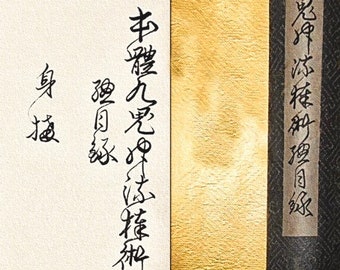 本體九鬼神流棒術
極目録
身棒
鬼神流棒術極目録